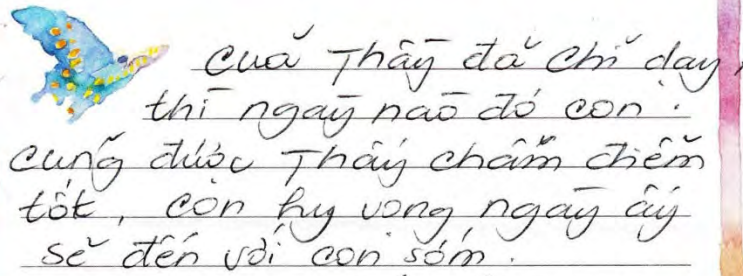 của Thầy đã chỉ dạy
thì ngày nào đó con
cũng được Thầy chấm điểm
tốt, con hy vọng ngày ấy
sẽ đến với con sớm.